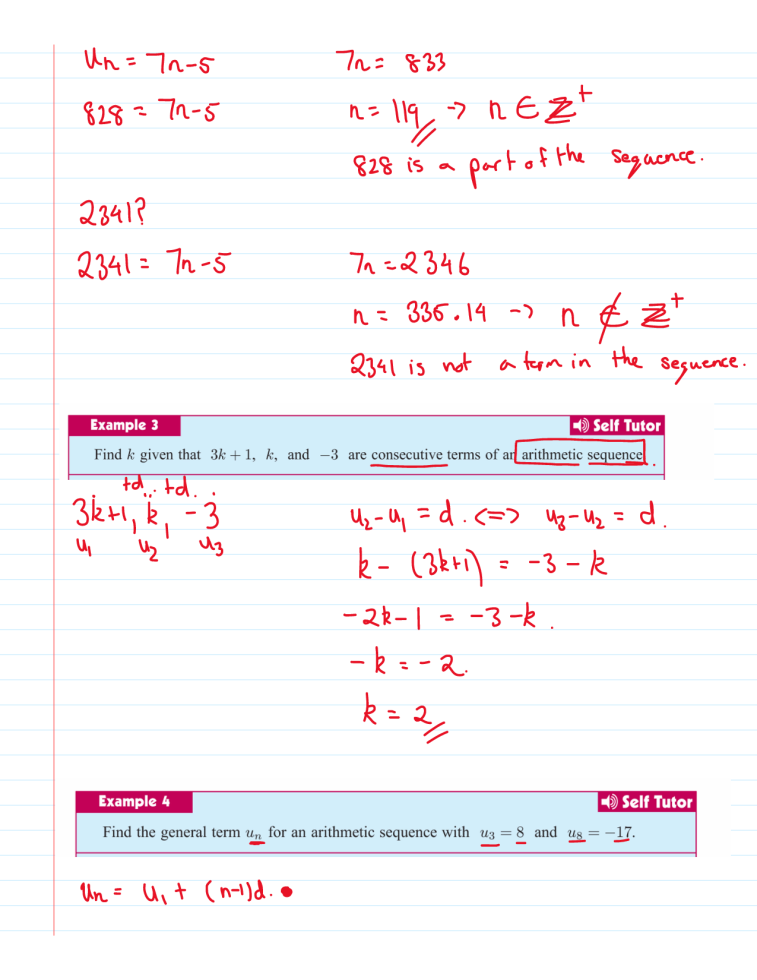 uₙ = 7n-5    7n = 833
828 = 7n-5    n = 119 -> n ∈ ℤ⁺
828 is a part of the sequence.
2341?
2341 = 7n-5    7n = 2346
n = 335.14 -> n ∉ ℤ⁺
2341 is not a term in the sequence.
Example 3    Self Tutor
Find k given that 3k + 1, k, and −3 are consecutive terms of an arithmetic sequence.
+d +d
3k+1, k, -3    u₂-u₁ = d. <=> u₃-u₂ = d.
u₁ u₂ u₃
k - (3k+1) = -3 - k
-2k-1 = -3-k.
-k = -2.
k = 2
Example 4    Self Tutor
Find the general term uₙ for an arithmetic sequence with u₃ = 8 and u₈ = −17.
uₙ = u₁ + (n-1)d.